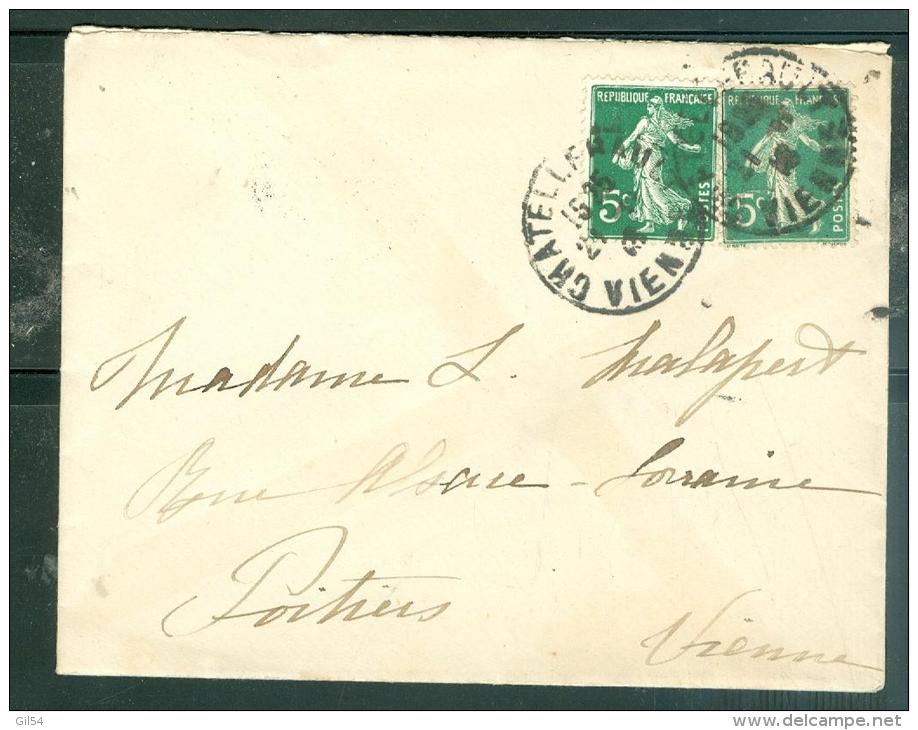 REPUBLIQUE FRANÇAISE
5c POSTES
REPUBLIQUE FRANÇ
5c POSTES
CHATELLERAULT
VIENNE
VIENNE
Madame L. Malapert
Rue Alsace-Lorraine
Poitiers
Vienne
Gil54
www.delcampe.net